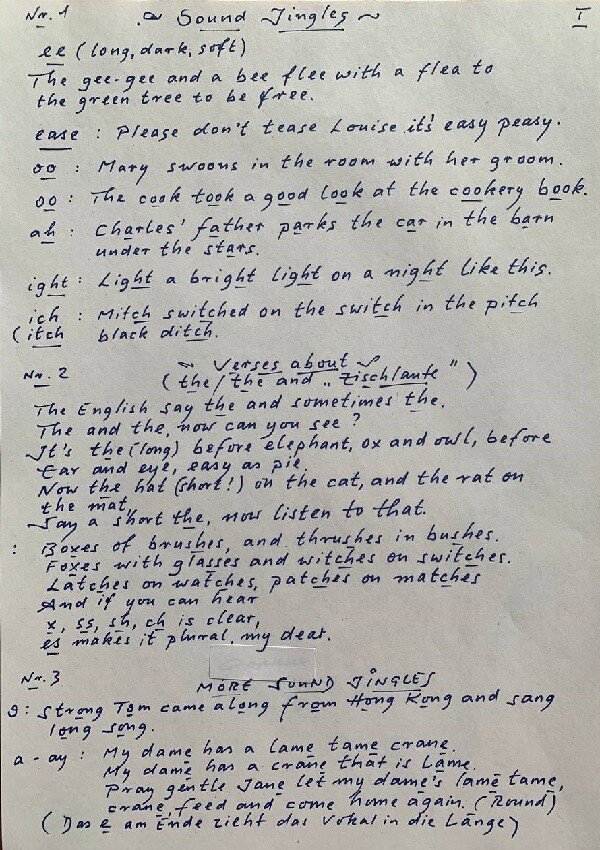 Nr. 1 ~ Sound Jingles ~ I
ee (long, dark, soft)
The gee-gee and a bee flee with a flea to
the green tree to be free.
ease : Please don't tease Louise it's easy peasy.
oo : Mary swoons in the room with her groom.
oo : The cook took a good look at the cookery book.
ah : Charles' father parks the car in the barn
under the stars.
ight : Light a bright light on a night like this.
ich : Mitch switched on the switch in the pitch
(itch black ditch.
Nr. 2 ~ Verses about ~
(the/the and „Zischlaute")
The English say the and sometimes the.
The and the, now can you see?
It's the (long) before elephant, ox and owl, before
Ear and eye, easy as pie.
Now the hat (short!) on the cat, and the rat on
the mat,
Say a short the, now listen to that.
: Boxes of brushes, and thrushes in bushes.
Foxes with glasses and witches on switches.
Latches on watches, patches on matches
And if you can hear
x, ss, sh, ch is clear,
es makes it plural, my dear.
Nr. 3 MORE SOUND JINGLES
: Strong Tom came along from Hong Kong and sang
long song.
a - ay : My dame has a lame tame crane.
My dame has a crane that is lame.
Pray gentle Jane let my dame's lame tame,
crane, feed and come home again. (Round)
(Das e am Ende zieht das Vokal in die Länge)